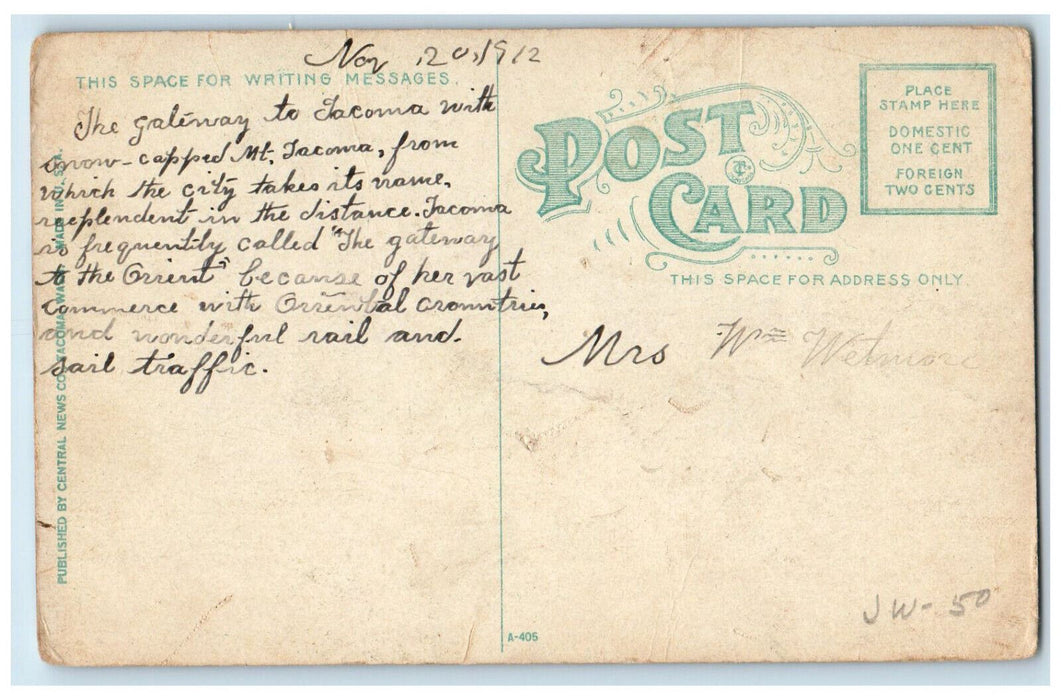 Nov 20, 1912
THIS SPACE FOR WRITING MESSAGES.
The gateway to Tacoma with
snow-capped Mt. Tacoma, from
which the city takes its name,
resplendent in the distance. Tacoma
is frequently called "The gateway
to the Orient" because of her vast
commerce with Oriental crountries,
and wonderful rail and
sail traffic.
PUBLISHED BY CENTRAL NEWS CO. TACOMA, WASH. MADE IN U.S.A.
POST
CARD
PLACE
STAMP HERE
DOMESTIC
ONE CENT
FOREIGN
TWO CENTS
THIS SPACE FOR ADDRESS ONLY.
Mrs Wm Wetmore
JW-50
A-405